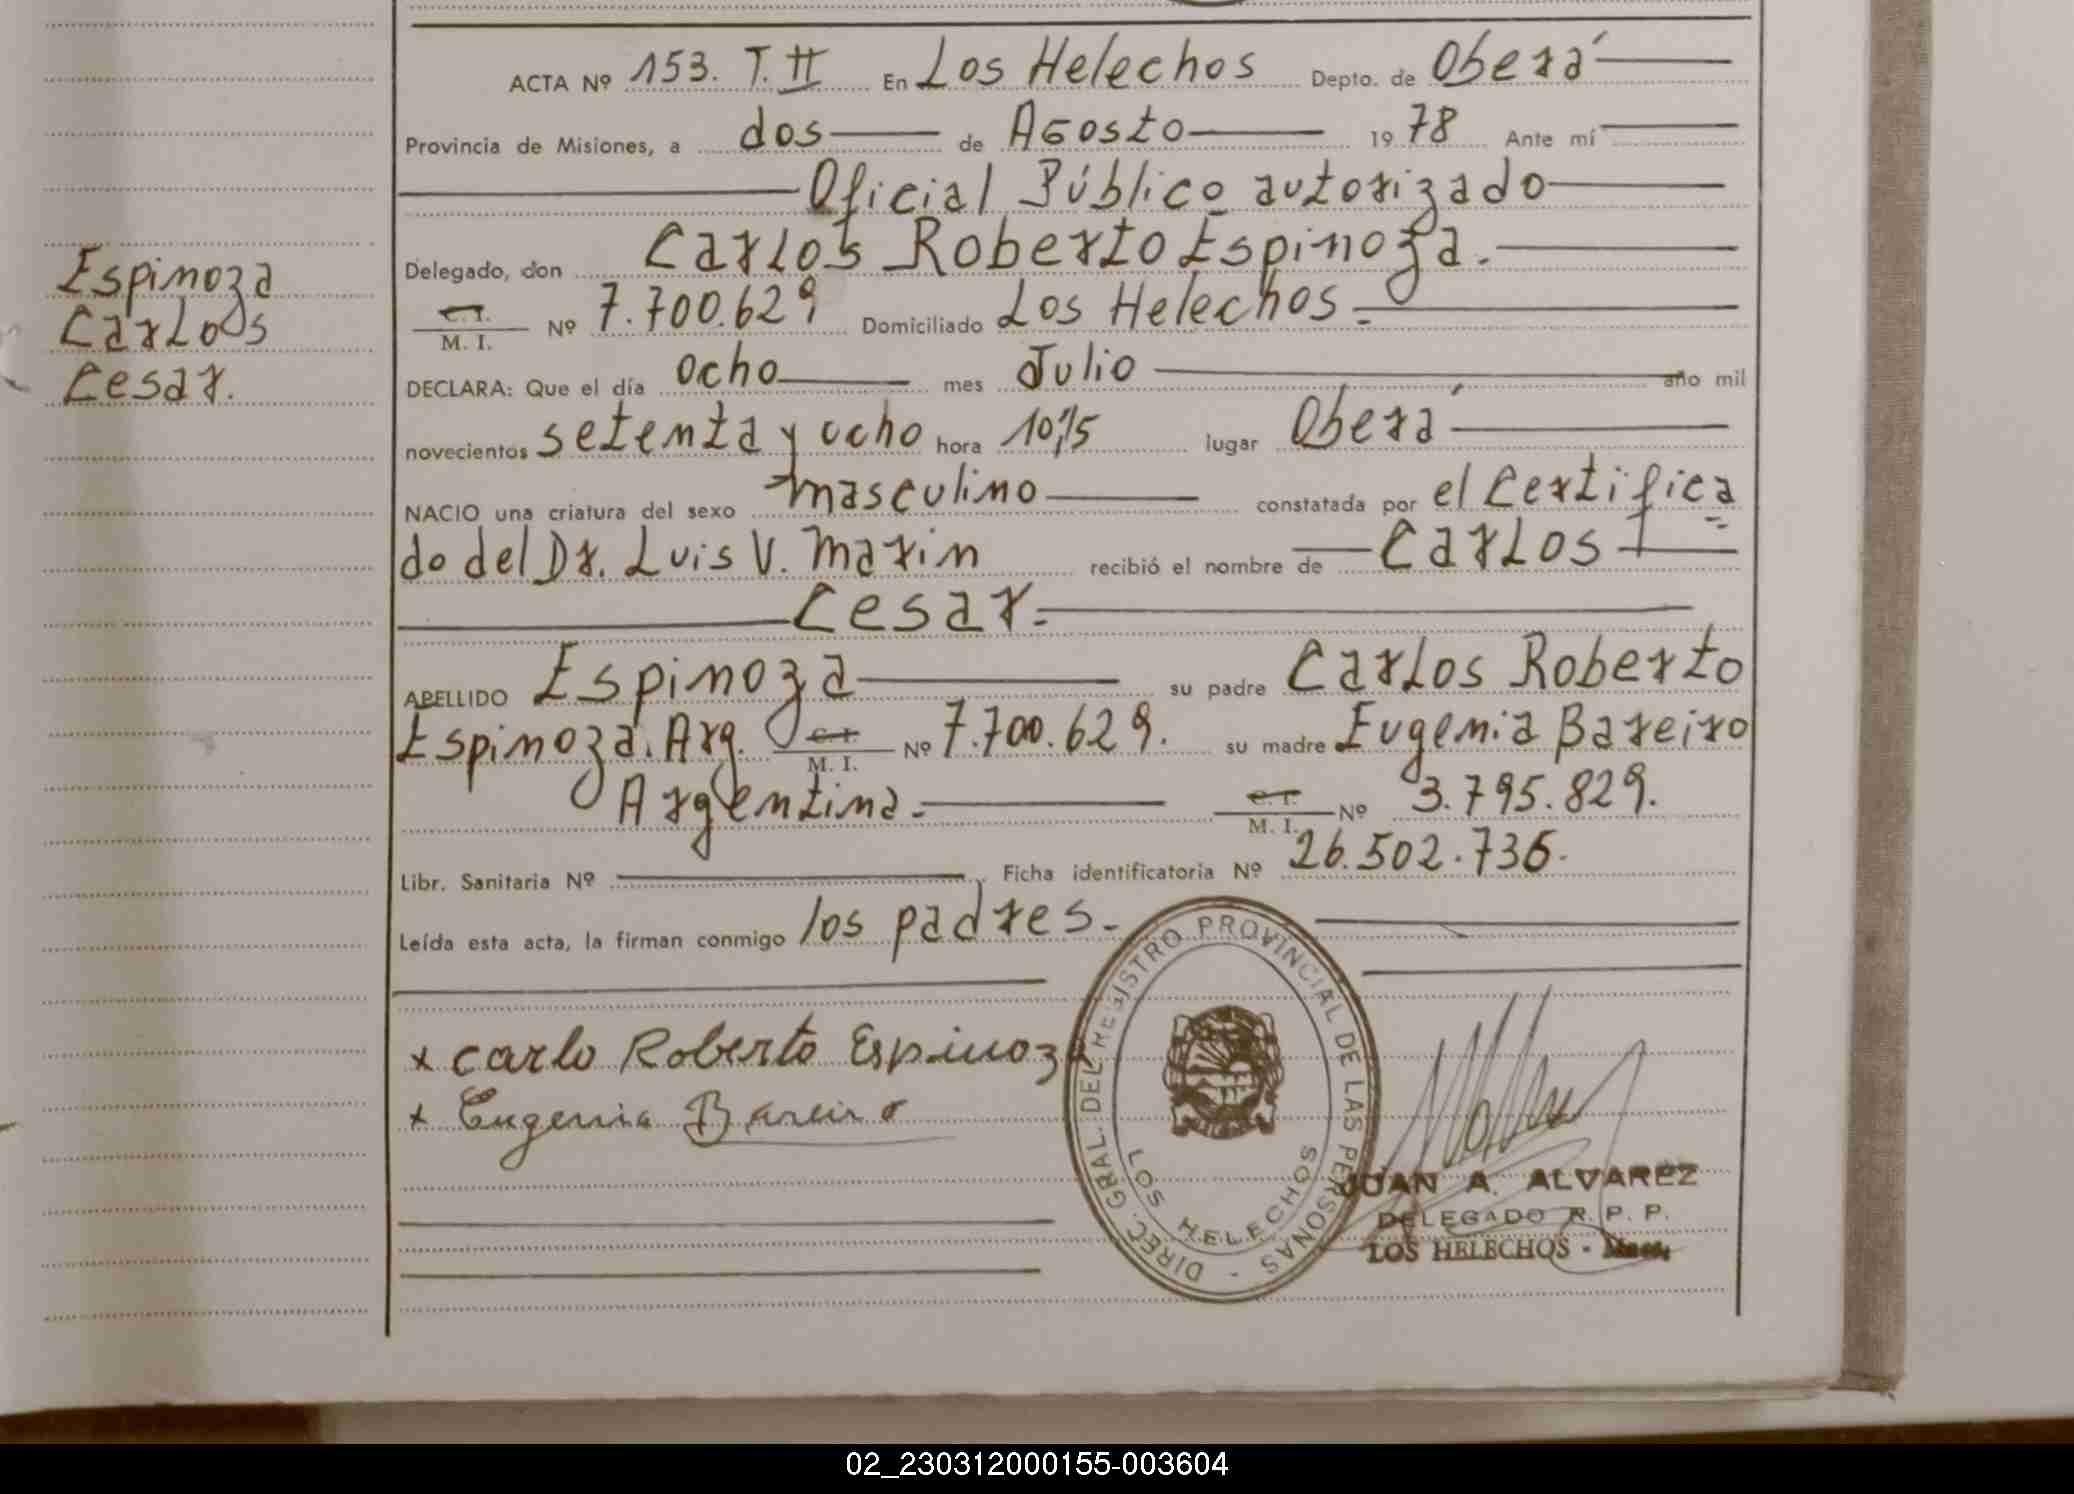 ACTA Nº 153. T. II En Los Helechos Depto. de Oberá
Provincia de Misiones, a dos de Agosto 1978 Ante mí
Oficial Público autorizado
Delegado, don Carlos Roberto Espinoza.
C.I. M. I. Nº 7.700.629 Domiciliado Los Helechos.
DECLARA: Que el día ocho mes Julio año mil
novecientos setenta y ocho hora 10,15 lugar Oberá
NACIO una criatura del sexo masculino constatada por el Certifica
do del Dr. Luis V. Marin recibió el nombre de Carlos
Cesar.
APELLIDO Espinoza su padre Carlos Roberto
Espinoza. Arg. C.I. M. I. Nº 7.700.629. su madre Eugenia Bareiro
Argentina. C.I. M. I. Nº 3.795.829.
Libr. Sanitaria Nº Ficha identificatoria Nº 26.502.736.
Leída esta acta, la firman conmigo los padres.
Espinoza
Carlos
Cesar.
x Carlo Roberto Espinoza
x Eugenia Bareiro
DIREC. GRAL. DEL REGISTRO PROVINCIAL DE LAS PERSONAS -
LOS HELECHOS
JUAN A. ALVAREZ
DELEGADO R. P. P.
LOS HELECHOS - Mnes.
02_230312000155-003604